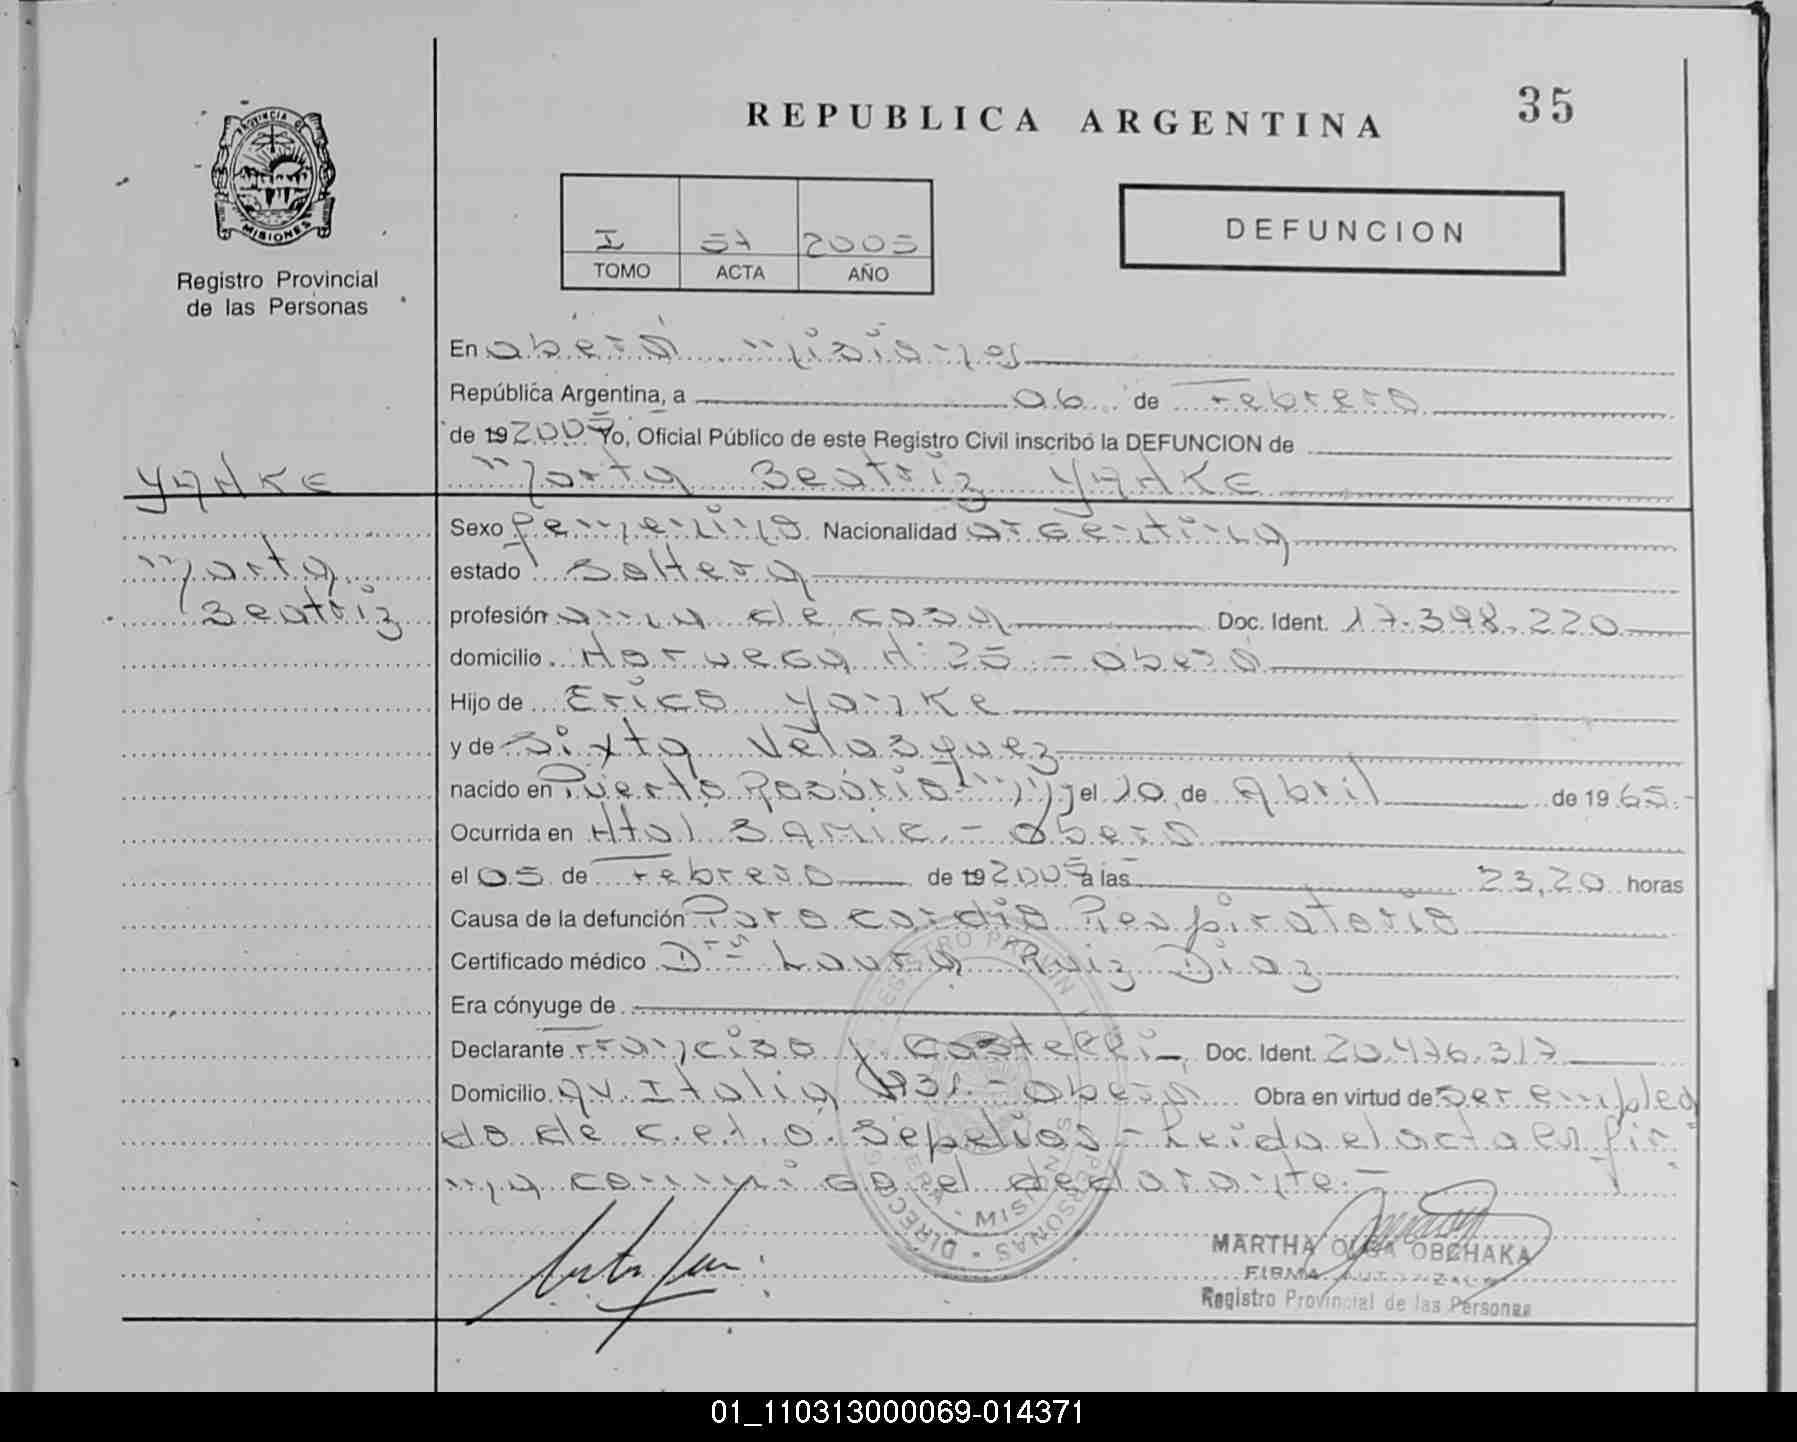 REPUBLICA ARGENTINA
35
PROVINCIA DE
MISIONES
Registro Provincial
de las Personas
I 57 2005
TOMO ACTA AÑO
DEFUNCION
En oberá Misiones
República Argentina, a 06 de Febrero
de 19 2005 Yo, Oficial Público de este Registro Civil inscribo la DEFUNCION de
Marta Beatriz YANKE
YANKE
Marta
Beatriz
Sexo femenino Nacionalidad argentina
estado soltera
profesión ama de casa Doc. Ident. 17.398.220
domicilio Noruega N: 25 - oberá
Hijo de Erico Yanke
y de Sixta Velasquez
nacido en Puerto Rosario el 10 de Abril de 1965.-
Ocurrida en Htal SAMIC. - oberá
el 05 de Febrero de 19 2005 a las 23,20 horas
Causa de la defunción Paro cardio Respiratorio
Certificado médico Dra Laura Ruiz Diaz
Era cónyuge de
Declarante Francisco Doc. Ident. 20.476.317
Domicilio av. Italia - oberá Obra en virtud de ser emplea
do de c.e.l.o. Sepelios - Leida el acta la fir
ma conmigo el declarante -
MISIONES
MARTHA OLGA OBCHAKA
FIRMA AUTORIZADA
Registro Provincial de las Personas
01_110313000069-014371